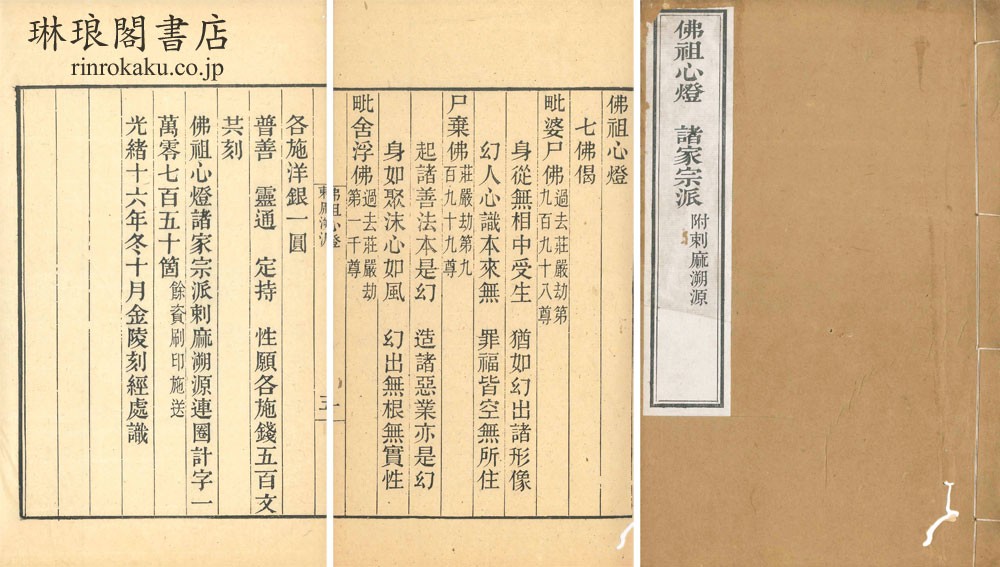 琳琅閣書店
rinrokaku.co.jp
佛祖心燈　諸家宗派　附剌麻溯源
佛祖心燈
七佛偈
毗婆尸佛過去莊嚴劫第九百九十八尊
身從無相中受生　猶如幻出諸形像
幻人心識本來無　罪福皆空無所住
尸棄佛莊嚴劫第九百九十九尊
起諸善法本是幻　造諸惡業亦是幻
身如聚沫心如風　幻出無根無實性
毗舍浮佛過去莊嚴劫第一千尊
佛祖心燈
一
剌麻溯源
三
各施洋銀一圓
普善　靈通　定持　性願各施錢五百文
共刻
佛祖心燈諸家宗派剌麻溯源連圈計字一
萬零七百五十箇餘資刷印施送
光緒十六年冬十月金陵刻經處識